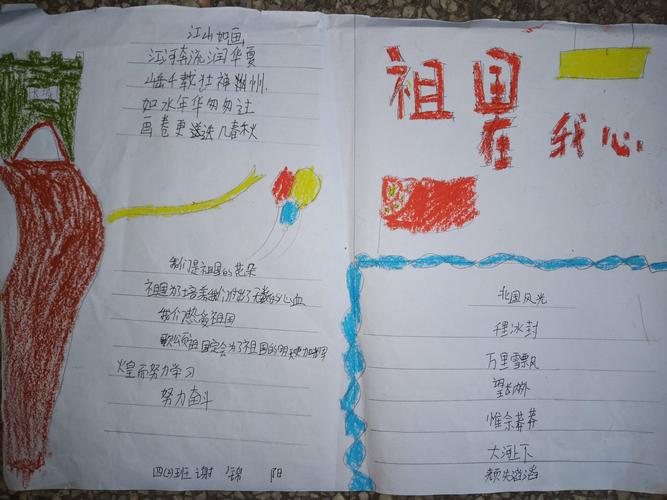 江山如画
江河奔流润华夏
千载壮神州
如水年华匆匆过
画卷更几春秋
我们是祖国的花朵
祖国为了培养我们付出了无数的心血
我们热爱祖国
歌颂祖国定会为了祖国的明天更加辉
煌而努力学习
努力奋斗
四(2)班 谢 锦 阳
祖国
在 我心
北国风光
千里冰封
万里雪飘
望长城内外
惟余莽莽
大河上下
顿失滔滔